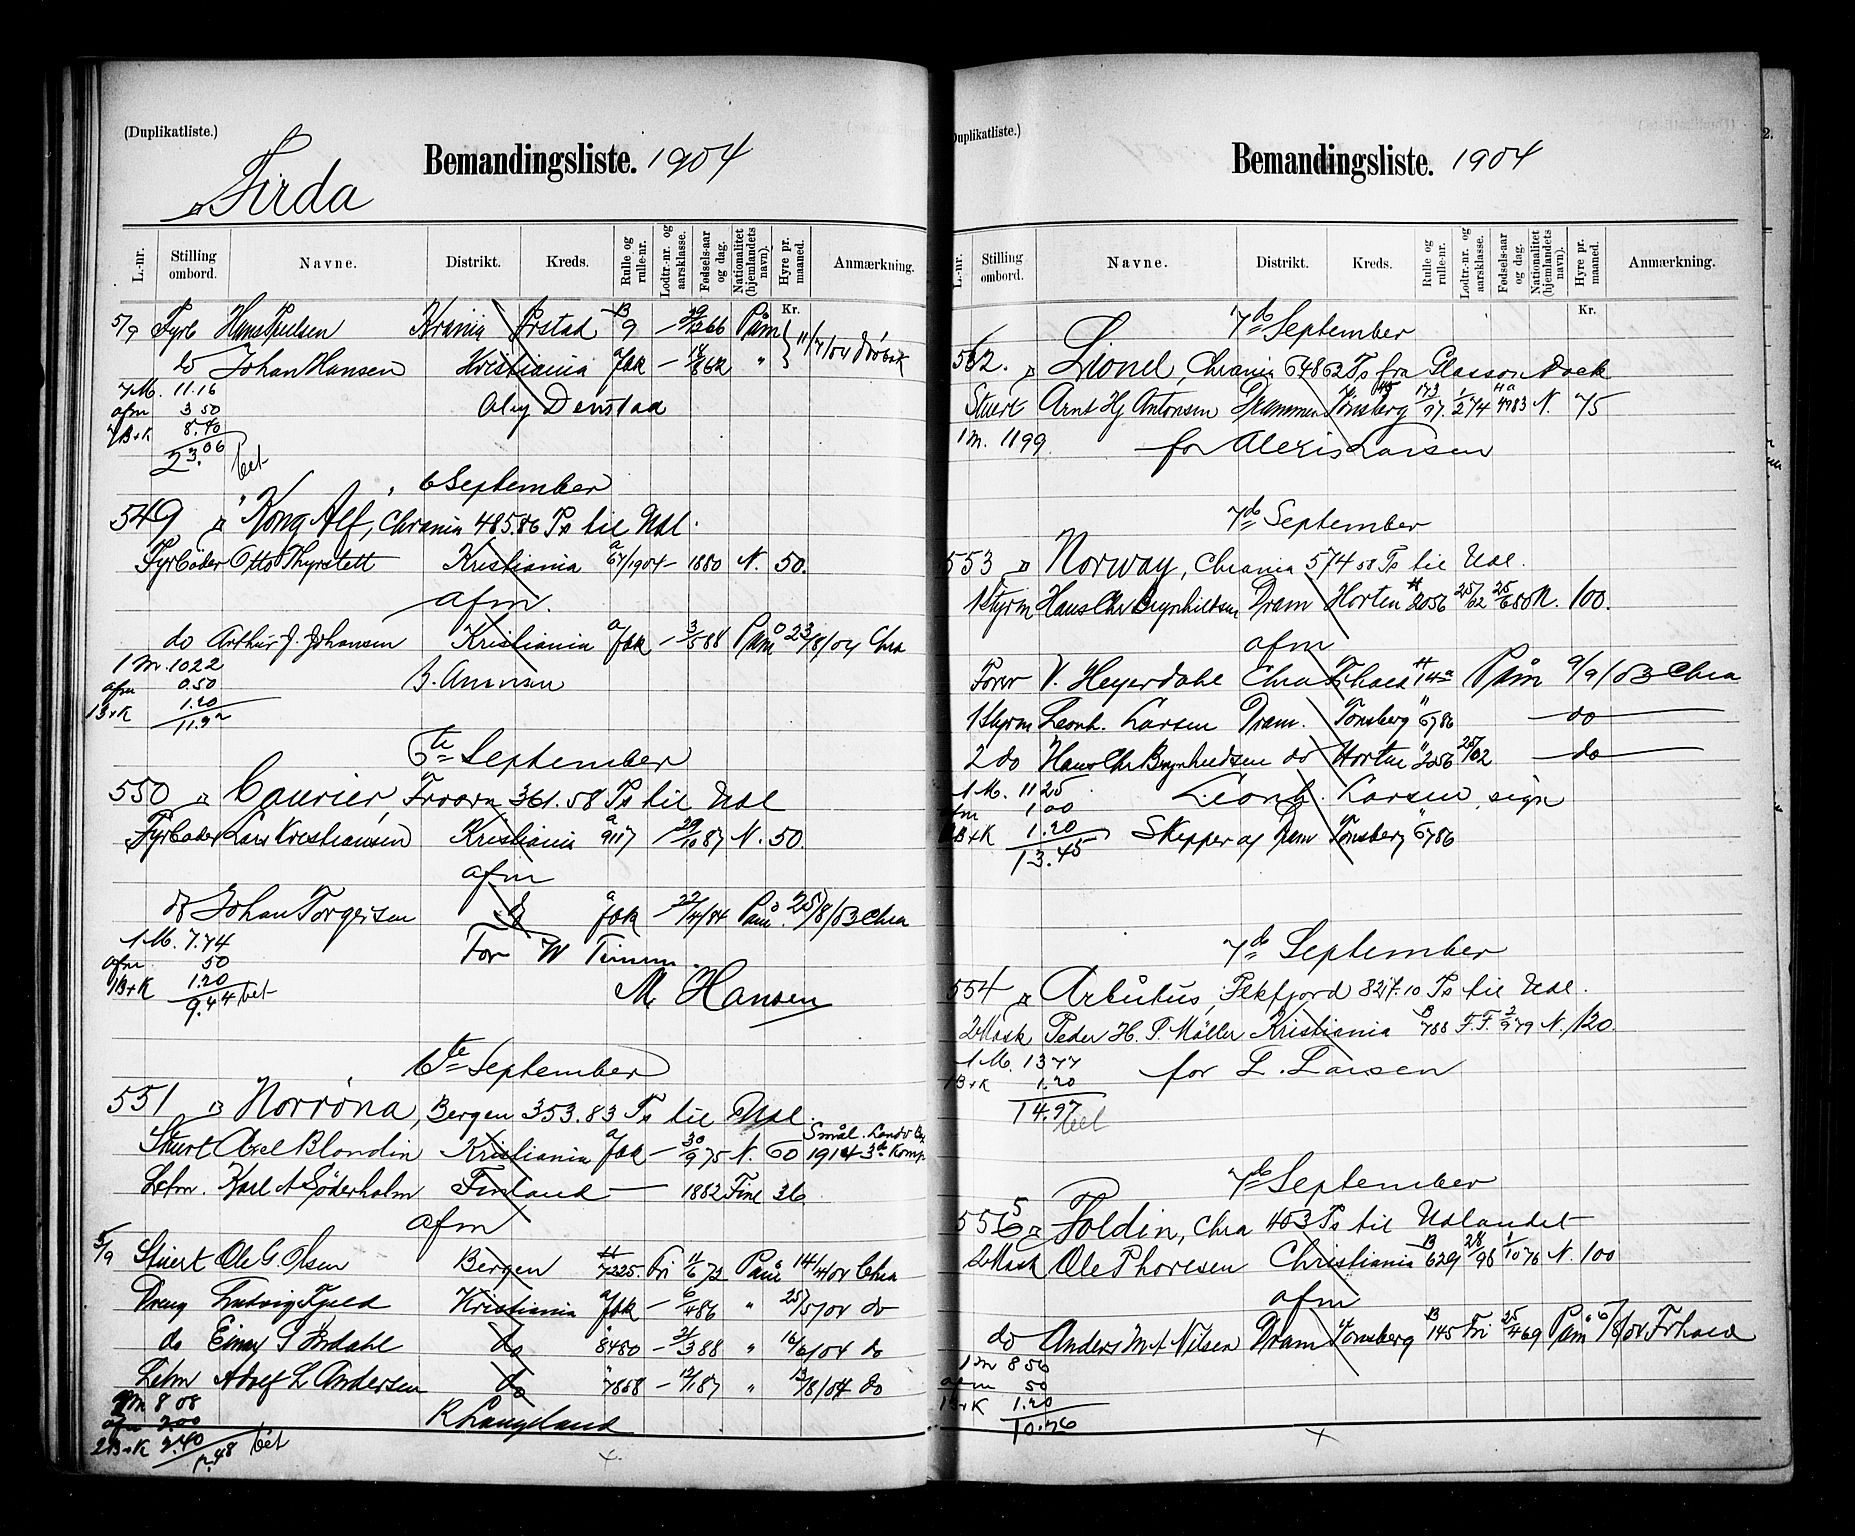 (Duplikatliste.)
Bemandingsliste. 1904
Firda
L.-nr. Stilling ombord. Navne. Distrikt. Kreds. Rulle og rulle-nr. Lodtr.-nr. og aarsklasse. Fødsels-aar og dag. Nationalitet (hjemlandets navn). Hyre pr. maaned. Anmærkning.
Kr.
5/9 Fyrb Hans Poulsen Krania 9 Påm
do Johan Hansen Kristiania fok " 11/7/04 Drøbak
7M. 11.16
afm 3 50
7B+K 8.40
23.06 bet
Oluf Denstad
6 September
549 D "Kong Alf", Chrania 485.86 Ts til Udl.
Fyrbøder Otto Thyrstett Kristiania 1880 N. 50.
afm.
do Arthur J. Johansen Kristiania fok 3/5 88 Påm 23/8/04 Chra
1 M. 1022
afm 0.50
1B+K 1.20
11.92
6te September
550 D Courier, 361.58 Ts til Udl
Fyrbøder Lars Kristiansen Kristiania 9117 29/10 87 N. 50.
afm
do Johan Torgersen do fok 22/4/84 Påm. 25/8/03 Chra
1M. 7.74
afm. 50
1B+K 1.20
9.44 bet
For W
M Hansen
6te September
551 D Norrøna, Bergen 353.83 Ts til Udl.
Stuert Axel Blondin Kristiania fok 30/9 75 N. 60 1914 3die Komp.
Letm. Karl A Söderholm Finland 1882 Finl 36
afm
5/9 Stuert Ole G. Olsen Bergen 7225. Fri 11/6 72 Påm 14/4/04 Chra
Dreng Ludvig Fjeld Kristiania fok 6/4 86 " 25/5/04 do
do Einar S Ørdahl do 8480 21/3 88 " 16/6/04 do
Letm Adolf L Andersen do 7858 12/1 87 " 13/8/04 do
2M 8 08
afm 2.00
2B+K 2.40
12.48 bet
R Langeland
Duplikatliste.)
Bemandingsliste. 1904
L.-nr. Stilling ombord. Navne. Distrikt. Kreds. Rulle og rulle-nr. Lodtr.-nr. og aarsklasse. Fødsels-aar og dag. Nationalitet (hjemlandets navn). Hyre pr. maaned. Anmærkning.
Kr.
7de September
552. D Lionel, Chrania 648 62 Ts fra Glasson Dock
Stuert Arnt Hj Antonsen Drammen Tønsberg N. 75
1 M. 1199
for Alexis Larsen
7de September
553 D Norway, Chrania 574 58 Ts til Udl.
1 Styrm Hans Chr Brynhildsen Dram Horten 2056 25/02 25/6 80 N. 100.
afm
Fører V. Heyerdahl Chra Frhald 14a Påm 9/9/03 Chra
1 Styrm Leonh. Larsen Dram. Tønsberg " 6786 do
2 do Hans Chr Brynhildsen do Horten " 2056 25/02 do
1 M. 11 25
afm 1 00
1B+K 1.20
13.45
Leonh. Larsen, sign
Skipper af Dram Tønsberg 6786
7de September
554 D Arbutus, Flekfjord 827.10 Ts til Udl.
2 Mask Peder H. P. Møller Kristiania B 788 F.F. 2/9 79 N. 120.
1M. 1377
1B+K 1.20
14.97
bet
for L. Larsen
7de September
555 D Foldin, Chra 403 Ts til Udlandet
2 Mask Ole Thoresen Christiania B 629 28/98 1/10 76 N. 100
afm
do Anders M A Nilsen Dram Tønsberg B 145 Fri 25/4 69 Påm 6/8/04 Frhald
1 M 8 56
afm 50
1B+K 1.20
10.26